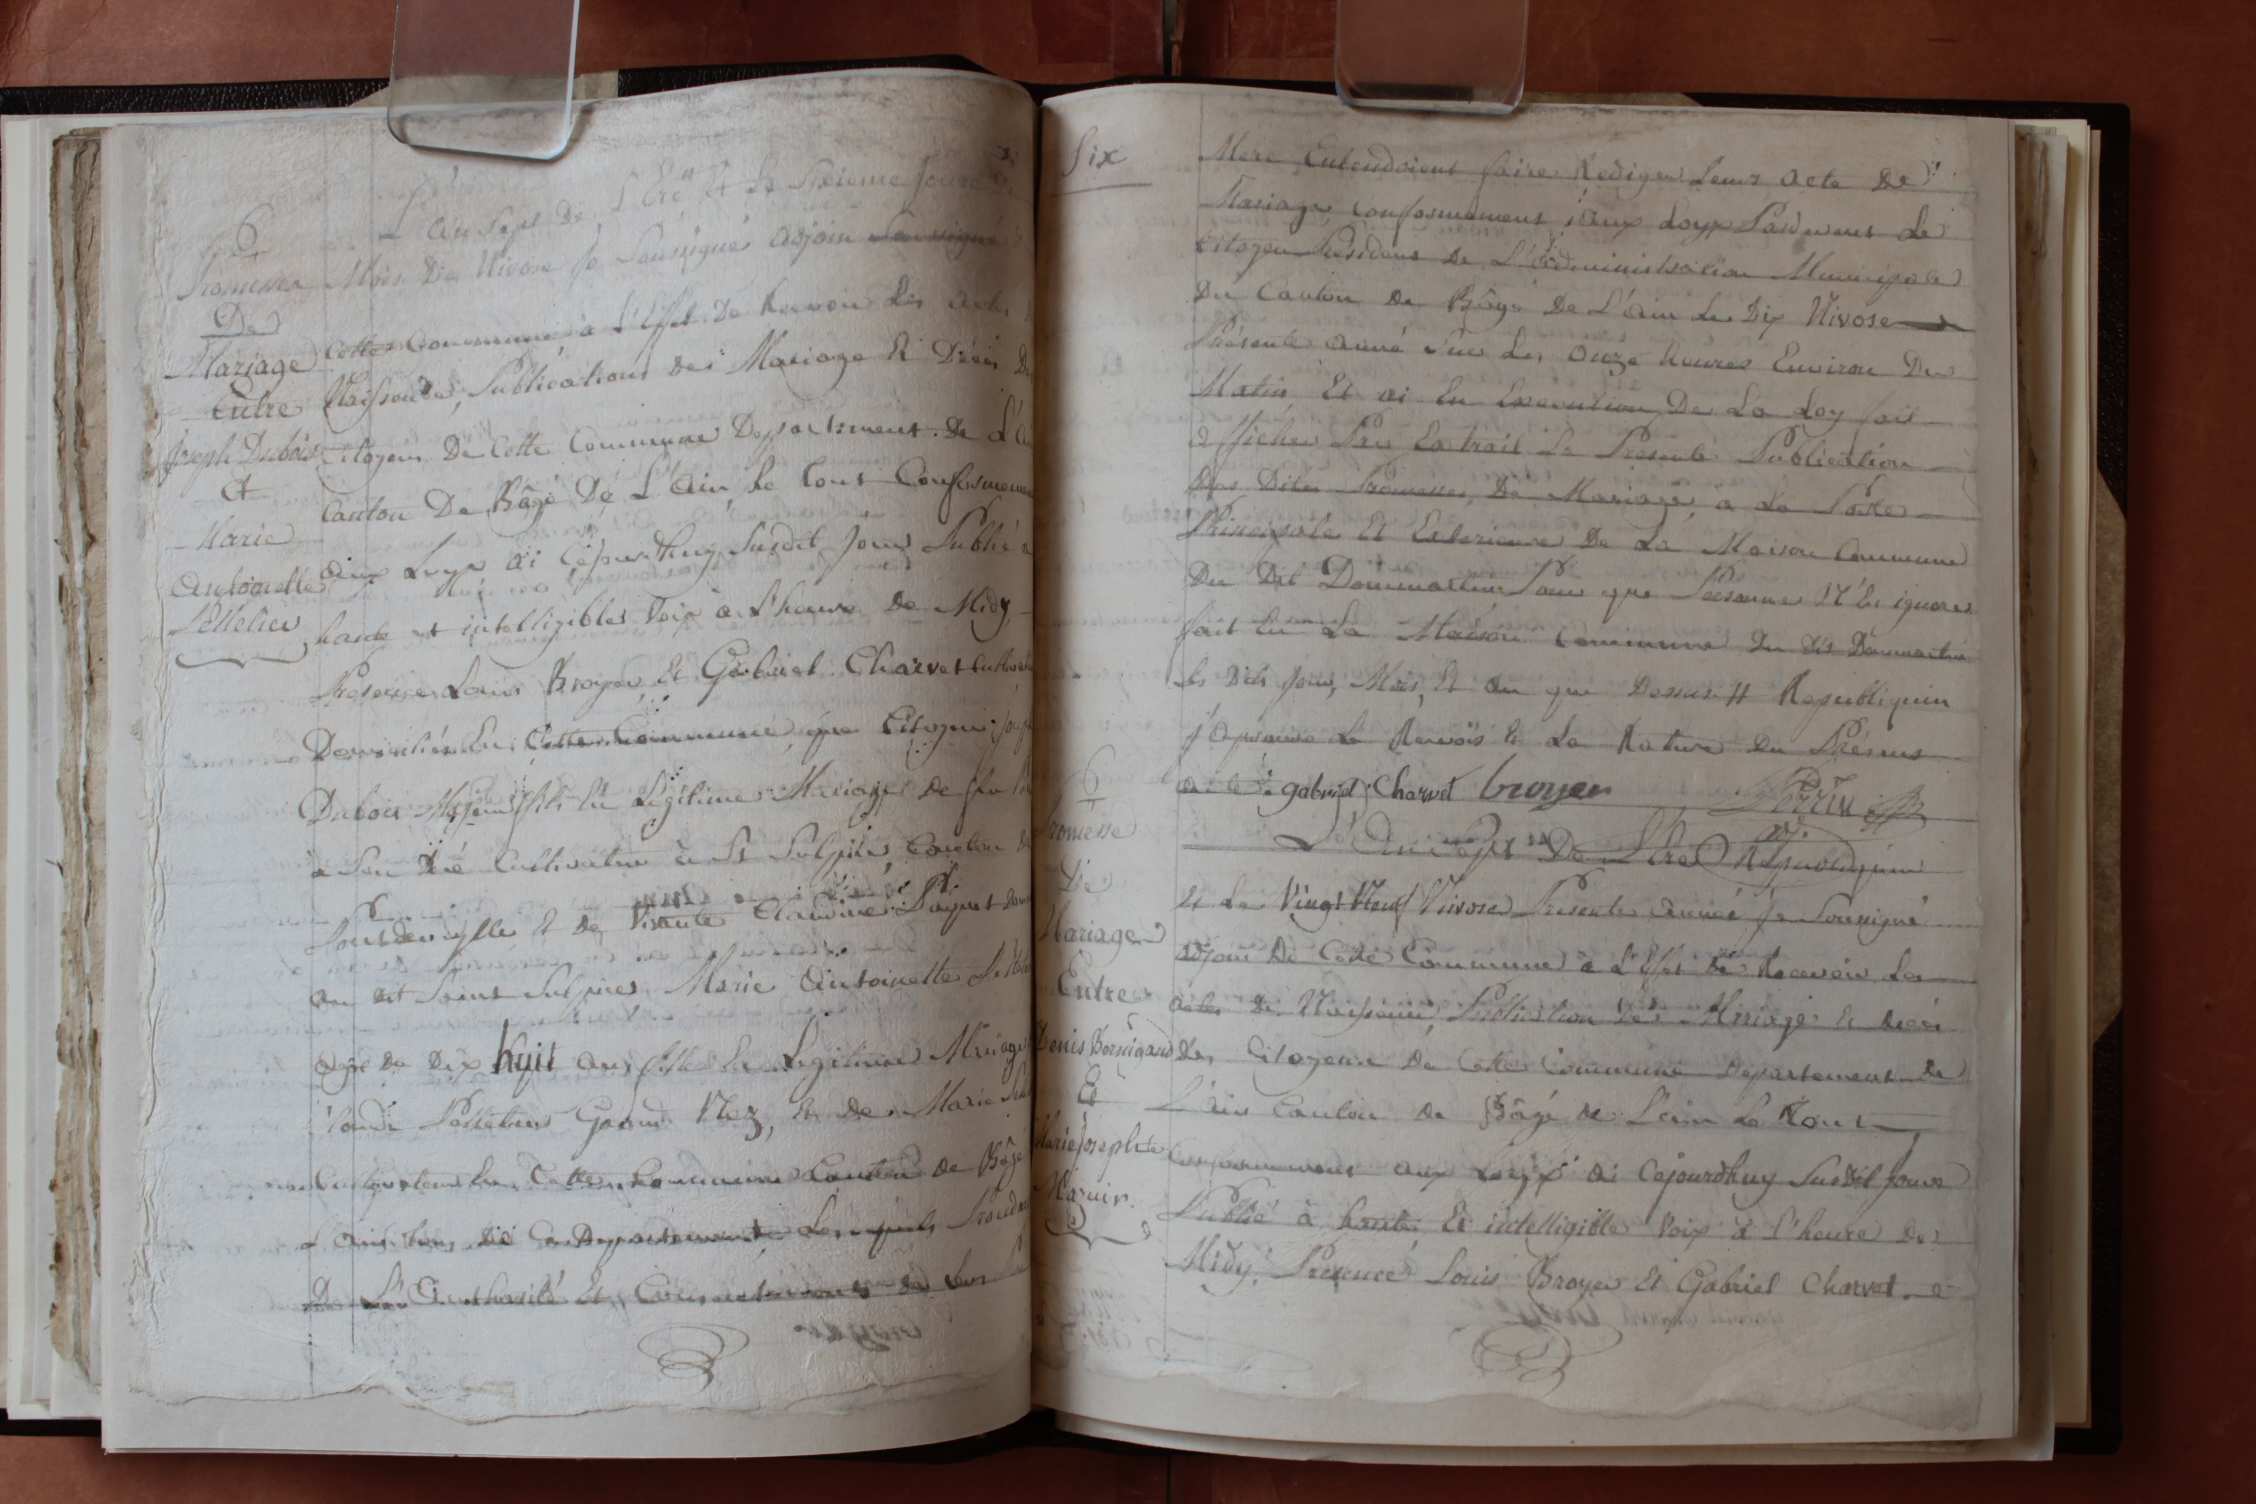 6
Promesse
De
Mariage
Entre
Joseph Dubois
Et
Marie
Antoinette
Pelletier
L'an Sept De L'Ere Et le Jour
Mois De Nivose Je Soussigné adjoin
Cette Commune à L'Effet De Recevoir Les actes
Naissance, Publications des Mariage Et Décés
Citoyens De Cette Commune Departement De L'
Canton De Bâgé De L'Ain, Le tout
aux Loyx ai Cejourdhuy Susdit Jour Publié a
haute et intelligibles Voix à L'heure De Midy
Presence Louis Broyer Et Gabriel Charvet
Domiciliés En Cette Commune que Citoyen
Dubois Majeur fils En Légitime Mariage De feu
à Son cultivateur à St Sulpice, Canton
Et De Vivante Claudine
au dit Saint Sulpice, Marie Antoinette
agée De Dix huit ans fille En Legitime Mariage
Claude Pelletier Grand Nez, Et De Marie
En Cette Commune Canton De Bâgé
tous De Ce Departement Lesquels
De L'Authorité Et De leur
Six
Mere Entendoient faire Rediger Leurs acte De
Mariage Conformement aux Loyx Pardevant Le
Citoyen Président De L'administration Municipale
Du Canton De Bâgé De L'ain Le Dix Nivose
Présente année Sur Les Onze heures Environ Du
Matin Et ai En Execution De La Loy fait
afficher Par Extrait La Presente Publication
Des Dites Promesses De Mariage, a La Porte
Principale Et Exterieure De La Maison Commune
Du Dit Dommartin Pour que Personne N'En ignores
fait En La Maison Commune Du dit Dommartin
Les Dits Jour, Mois, Et an que Dessus # Republiquin
J'approuve Le Renvois Et La Rature Du Présent
acte gabriel Charvet broyer Perrin
adj.
6
Promesse
De
Mariage
Entre
Denis
Et
Marie Josephte
L'An Sept De L'Ere Republiquin
Et Le Vingt Neuf Nivose Presente année Je Soussigné
adjoin De Cette Commune a L'Effet De Recevoir Les
actes De Naissance, Publication Des Mariage Et Décés
Des Citoyens De Cette Commune Departement De
L'ain Canton De Bâgé De L'ain Le Tout
Conformement aux Loyx ai Cejourdhuy Susdit Jour
Publié à haute Et intelligible Voix à L'heure De
Midy, Presence Louis Broyer Et Gabriel Charvet